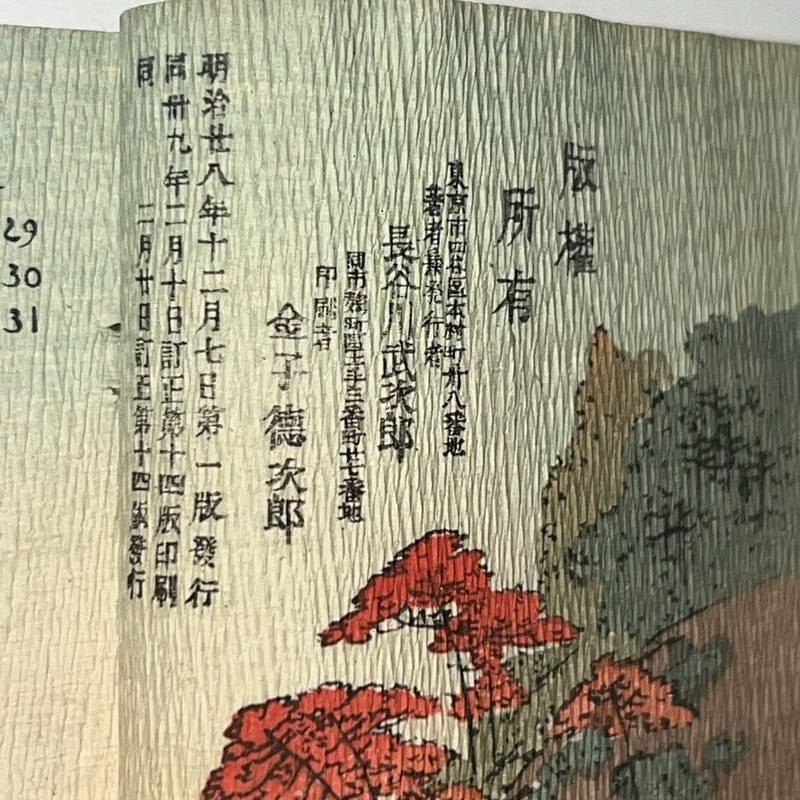 版權
所有
東京市四谷區本村町卅八番地
著者兼発行者
長谷川武次郎
同市麹町區上平三番町廿七番地
印刷者
金子德次郎
明治廿八年十二月七日第一版發行
同卅九年二月十日訂正第十四版印刷
同二月廿日訂正第十四版發行
29
30
31